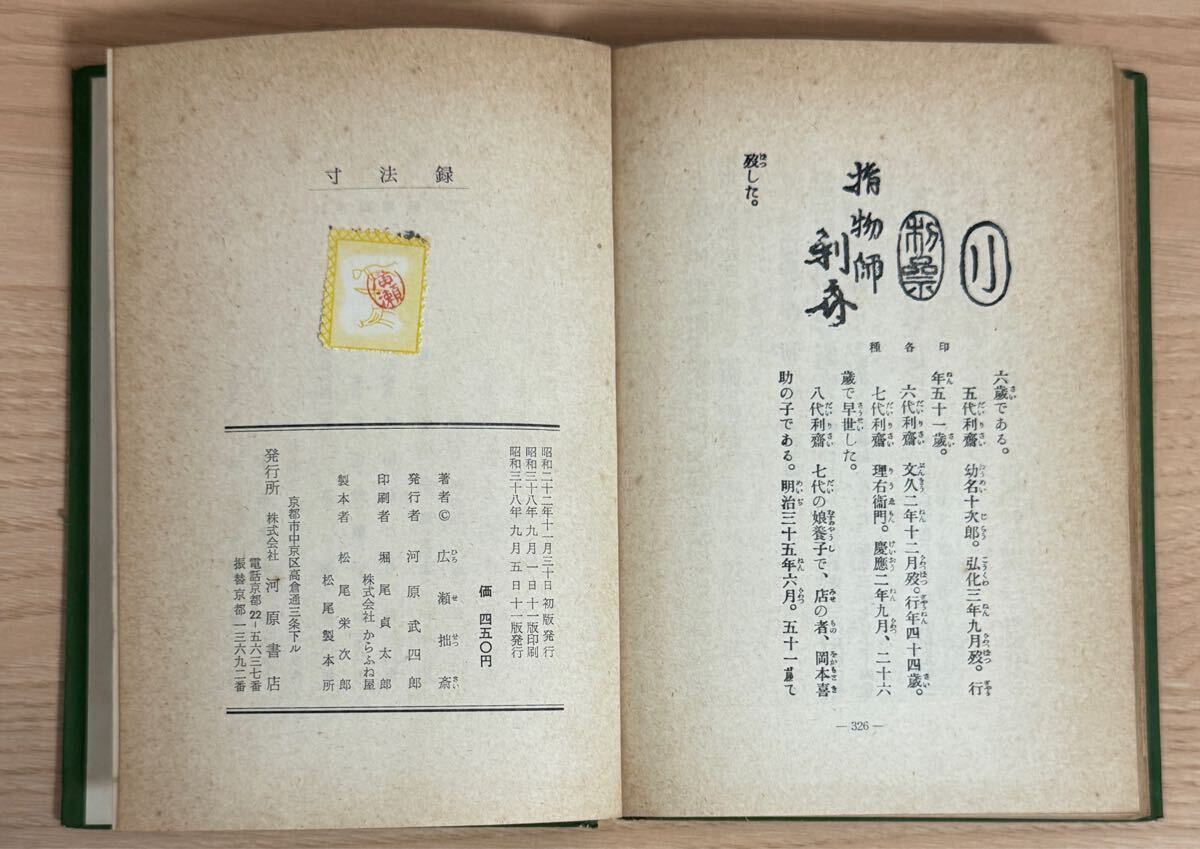 川
利齋
指物師
利斎
印各種
六歳である。
五代利齋 幼名十次郎。弘化三年九月歿。行
年五十一歳。
六代利齋 文久二年十二月歿。行年四十四歳。
七代利齋 理右衞門。慶應二年九月、二十六
歳で早世した。
八代利齋 七代の娘養子で、店の者、岡本喜
助の子である。明治三十五年六月。五十一歳で
歿した。
—326—
寸法録
廣瀬
昭和二十二年十一月三十日初版発行
昭和三十八年九月一日十一版印刷
昭和三十八年九月五日十一版発行
価 四五〇円
著者© 広瀬拙斎
発行者 河原武四郎
印刷者 堀尾貞太郎
株式会社からふね屋
製本者 松尾栄次郎
松尾製本所
京都市中京区高倉通三条下ル
発行所 株式会社 河原書店
電話京都22-五六三七番
振替京都一三六九二番